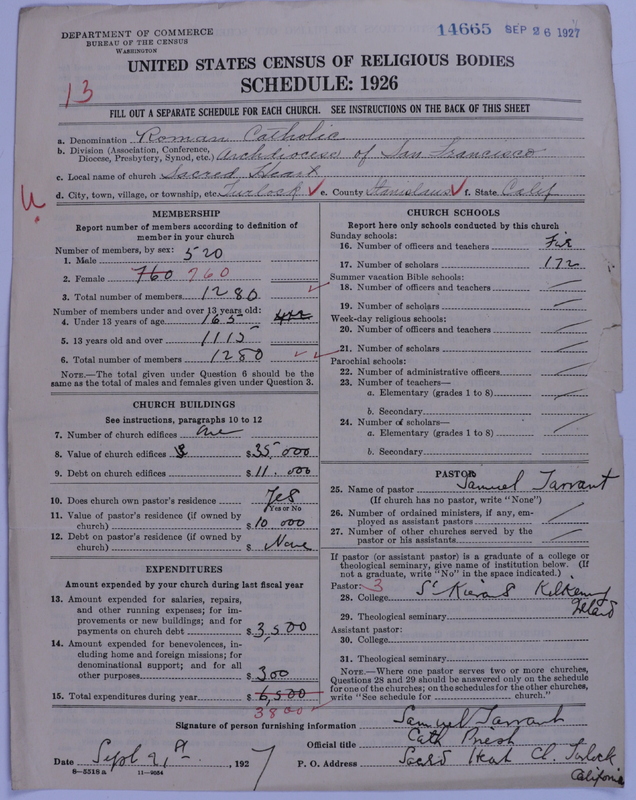 DEPARTMENT OF COMMERCE
BUREAU OF THE CENSUS
WASHINGTON
14665 SEP 26 1927
UNITED STATES CENSUS OF RELIGIOUS BODIES
SCHEDULE: 1926
13
FILL OUT A SEPARATE SCHEDULE FOR EACH CHURCH. SEE INSTRUCTIONS ON THE BACK OF THIS SHEET
a. Denomination Roman Catholic
b. Division (Association, Conference,
Diocese, Presbytery, Synod, etc.) Archdiocese of San Francisco
c. Local name of church Sacred Heart
d. City, town, village, or township, etc. Turlock e. County Stanislaus f. State Calif
MEMBERSHIP
Report number of members according to definition of
member in your church
Number of members, by sex:
1. Male 520
2. Female 760 760
3. Total number of members 1280
Number of members under and over 13 years old:
4. Under 13 years of age 165
5. 13 years old and over 1115
6. Total number of members 1280
NOTE.—The total given under Question 6 should be
the same as the total of males and females given under Question 3.
CHURCH BUILDINGS
See instructions, paragraphs 10 to 12
7. Number of church edifices One
8. Value of church edifices $ 35,000
9. Debt on church edifices $ 11.000
10. Does church own pastor's residence Yes
Yes or No
11. Value of pastor's residence (if owned by
church) $ 10 000
12. Debt on pastor's residence (if owned by
church) $ None
EXPENDITURES
Amount expended by your church during last fiscal year
13. Amount expended for salaries, repairs,
and other running expenses; for im-
provements or new buildings; and for
payments on church debt $ 3,500
14. Amount expended for benevolences, in-
cluding home and foreign missions; for
denominational support; and for all
other purposes $ 300
15. Total expenditures during year $ 6,500
3800
CHURCH SCHOOLS
Report here only schools conducted by this church
Sunday schools:
16. Number of officers and teachers Five
17. Number of scholars 172
Summer vacation Bible schools:
18. Number of officers and teachers
19. Number of scholars
Week-day religious schools:
20. Number of officers and teachers
21. Number of scholars
Parochial schools:
22. Number of administrative officers
23. Number of teachers—
a. Elementary (grades 1 to 8)
b. Secondary
24. Number of scholars—
a. Elementary (grades 1 to 8)
b. Secondary
PASTOR
25. Name of pastor Samuel Tarrant
(If church has no pastor, write "None")
26. Number of ordained ministers, if any, em-
ployed as assistant pastors
27. Number of other churches served by the
pastor or his assistants
If pastor (or assistant pastor) is a graduate of a college or
theological seminary, give name of institution below. (If
not a graduate, write "No" in the space indicated.)
Pastor: 3
28. College St Kierans Kilkenny
Ireland
29. Theological seminary
Assistant pastor:
30. College
31. Theological seminary
NOTE.—Where one pastor serves two or more churches,
Questions 28 and 29 should be answered only on the schedule
for one of the churches; on the schedules for the other churches,
write "See schedule for church."
Signature of person furnishing information Samuel Tarrant
Official title Cath Priest
Date Sept 21st, 1927 P. O. Address Sacred Heart Ch. Turlock
California
8—5518 a 11—9654